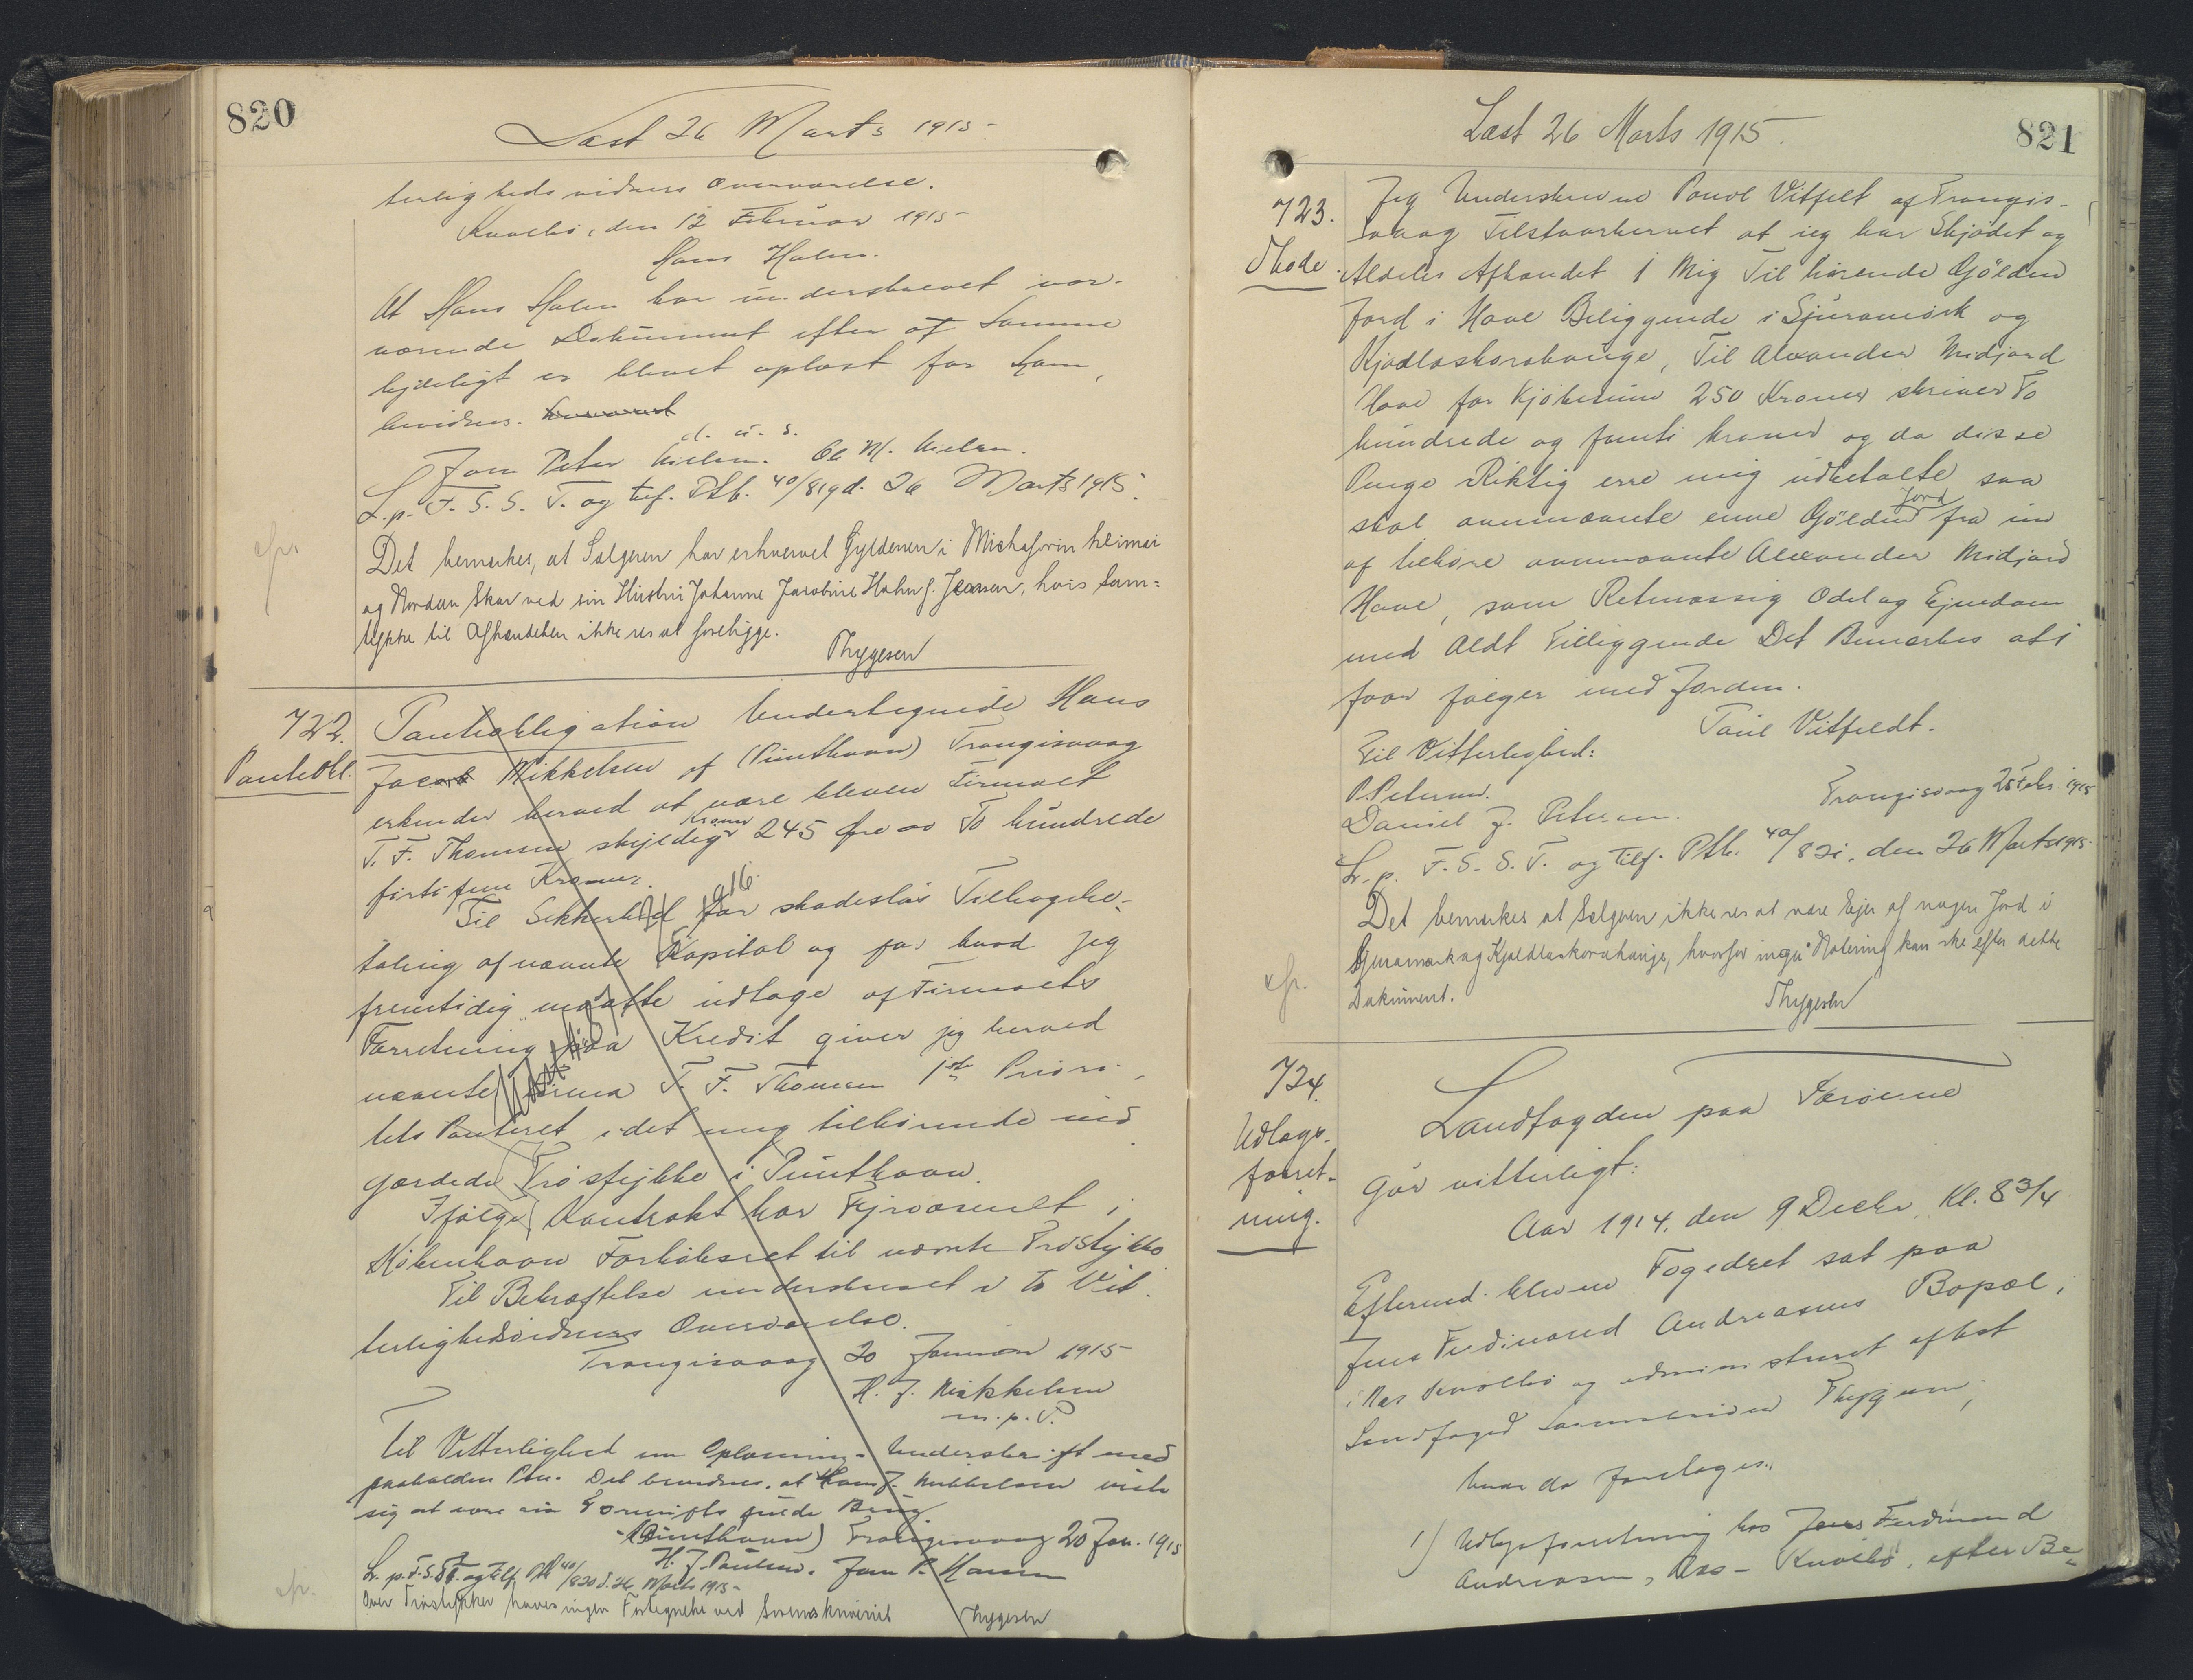 820
Læst 26 Marts 1915
terligheds vidners Overværelse.
Kvalbø, den 12 Februar 1915
Hans Holm.
At Hans Holm har underskrevet nær-
værende Dokument efter at samme
tydeligt er blevet oplæst for ham,
bevidnes.
d. u. s.
Joen Peter Nielsen. Ol M. Nielsen.
L. p. F. S. S. T. og tilf. Ptb. 40/819 d. 26 Marts 1915.
Det bemærkes, at Sælgeren har erhvervet Gyldenen i heimai
og Nordan Skar ved sin Hustru Johanne Jacobine Holm f. Joensen, hvis Sam-
tykke til Afhændelsen ikke ses at foreligge.
Thygesen
722.
Panteobl.
Panteobligation Undertegnede Hans
Jacob Mikkelsen af (Punthavn) Trangisvaag
erkender herved at være bleven Firmaet
T. F. Thomsen skyldig Kroner 245 Øre oo To hundrede
firti fem Kroner.
Til Sikkerhed for skadesløs Tilbagebe-
taling af nævnte Kapital og for hvad jeg
fremtidig maatte udtage af Firmaets
Forretning paa Kredit giver jeg herved
nævnte Firma T. F. Thomsen 1ste Priori-
tets Panteret i det mig tilhørende ind
gærdede Trøstykke i Punthavn.
Ifølge Kontrakt har Ejvasmelt i
København Forkøbsret til nævnte Trøstykke
Til Bekræftelse underskrevet i to Vit-
terlighedsvidners Overværelse.
Trangisvaag 20 Januar 1915
H. J. Mikkelsen
m. p. P.
Til Vitterlighed om Oplæsning - Underskrift med
paaholden Pen. Det bevidnes, at Hans J. Mikkelsen viste
sig at være sin Fornufts fulde Brug
(Punthavn) Trangisvaag 20 Jan. 1915
H. J. Poulsen. Joen P. Hansen
L. p. F. S. S. T. og tilf. Ptb 40/820 d. 26 Marts 1915
Over Trøstykker haves ingen Fortegnelse ved Sorenskriveriet Thygesen
Læst 26 Marts 1915.
821
723.
Skøde.
Jeg Underskrevne Pouol Vitfelt af Trangis-
vaag Tilstaar hervet at ieg har Skjødet og
Aldeles Afhændet 1 Mig Til hørende Gölden
Jord i Hove Beliggende i Sjuramørk og
Kjadlaskorahauge, Til Alexander Midjord
Hove for Kjøbesum 250 Kroner skriver To
hundrede og femti kroner og da disse
Penge Riktig erre mig udbetalte saa
skal ovennævnte enne Gölden Jord fra nu
af tilhøre ovennævnte Alexander Midjord
Hove, som Retmæssig Odel og Ejendom
med Aldt Tilliggende Det Bemærkes at 1
faar følger med Jorden.
Poul Vitfeldt.
Til Vitterlighed:
P. Petersen.
Trangisvaag 25 Febr. 1915
Daniel J. Petersen.
L. p. F. S. S. T. og Tilf. Ptb. 40/821, den 26 Marts 1915
Det bemærkes at Sælgeren ikke ses at være Ejer af nogen Jord i
Sjuramørk og Kjadlaskorahauge, hvorfor ingen Notering kan ske efter dette
Dokument.
Thygesen
724.
Udlægs-
forret-
ning.
Landfogden paa Færøerne
Gør vitterligt:
Aar 1914, den 9 Decbr. Kl. 8 3/4
Efterm. blev en Fogedret sat paa
Jens Ferdinand Andreasens Bopæl
i Nes Kvalbø og administreret af kst
Landfoged Sorenskriver Thygesen,
hvor da foretoges:
1) Udlægsforretning hos Jens Ferdinand
Andreasen, Nes - Kvalbø, efter Be-